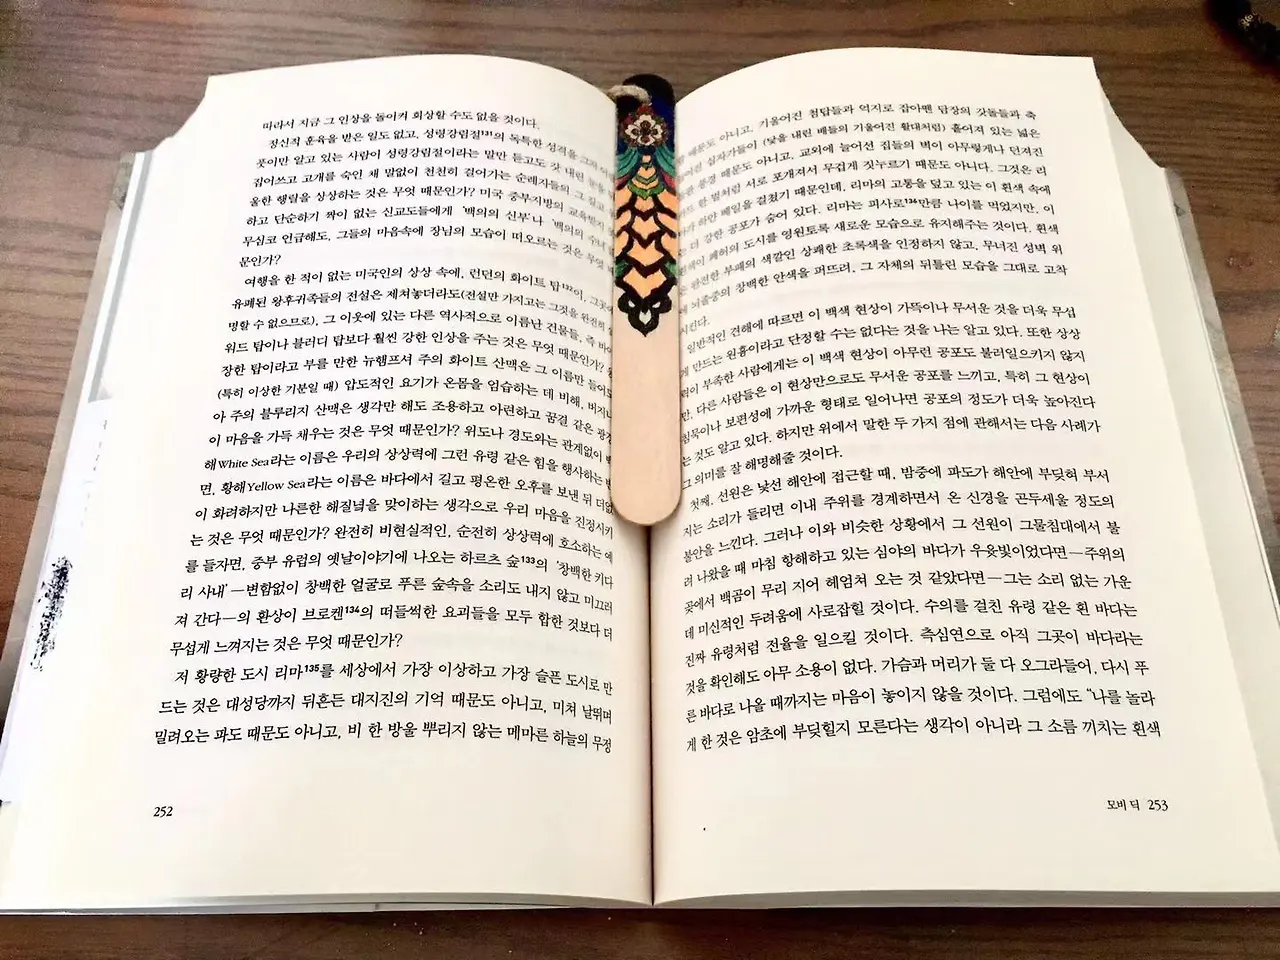 따라서 지금 그 인상을 돌이켜 회상할 수도 없을 것이다.
정신적 훈육을 받은 일도 없고, 성령강림절131의 독특한 성격을
풋이만 알고 있는 사람이 성령강림절이라는 말만 듣고도 갓 내린 눈을
집어쓰고 고개를 숙인 채 말없이 천천히 걸어가는 순례자들의 그 길고
울한 행렬을 상상하는 것은 무엇 때문인가? 미국 중부지방의 교육받지
하고 단순하기 짝이 없는 신교도들에게 ‘백의의 신부’나 ‘백의의 수녀’
무심코 언급해도, 그들의 마음속에 장님의 모습이 떠오르는 것은 무엇 때
문인가?
여행을 한 적이 없는 미국인의 상상 속에, 런던의 화이트 탑132이, 그곳에
유폐된 왕후귀족들의 전설은 제쳐놓더라도(전설만 가지고는 그것을 완전히 설
명할 수 없으므로), 그 이웃에 있는 다른 역사적으로 이름난 건물들, 즉 바이
워드 탑이나 블러디 탑보다 훨씬 강한 인상을 주는 것은 무엇 때문인가?
장한 탑이라고 부를 만한 뉴햄프셔 주의 화이트 산맥은 그 이름만 들어도
(특히 이상한 기분일 때) 압도적인 요기가 온몸을 엄습하는 데 비해, 버지니
아 주의 블루리지 산맥은 생각만 해도 조용하고 아련하고 꿈결 같은 광경
이 마음을 가득 채우는 것은 무엇 때문인가? 위도나 경도와는 관계없이 백
해White Sea라는 이름은 우리의 상상력에 그런 유령 같은 힘을 행사하는 반
면, 황해Yellow Sea라는 이름은 바다에서 길고 평온한 오후를 보낸 뒤 더없
이 화려하지만 나른한 해질녘을 맞이하는 생각으로 우리 마음을 진정시키
는 것은 무엇 때문인가? 완전히 비현실적인, 순전히 상상력에 호소하는 예
를 들자면, 중부 유럽의 옛날이야기에 나오는 하르츠 숲133의 ‘창백한 키다
리 사내’—변함없이 창백한 얼굴로 푸른 숲속을 소리도 내지 않고 미끄러
져 간다—의 환상이 브로켄134의 떠들썩한 요괴들을 모두 합한 것보다 더
무섭게 느껴지는 것은 무엇 때문인가?
저 황량한 도시 리마135를 세상에서 가장 이상하고 가장 슬픈 도시로 만
드는 것은 대성당까지 뒤흔든 대지진의 기억 때문도 아니고, 미쳐 날뛰며
밀려오는 파도 때문도 아니고, 비 한 방울 뿌리지 않는 메마른 하늘의 무정
252
때문도 아니고, 기울어진 첨탑들과 억지로 잡아맨 담장의 갓돌들과 축
십자가들이 (닻을 내린 배들의 기울어진 활대처럼) 흩어져 있는 넓은
풍경 때문도 아니고, 교외에 늘어선 집들의 벽이 아무렇게나 던져진
한 벌처럼 서로 포개져서 무겁게 짓누르기 때문도 아니다. 그것은 리
하얀 베일을 걸쳤기 때문인데, 리마의 고통을 덮고 있는 이 흰색 속에
더 강한 공포가 숨어 있다. 리마는 피사로136만큼 나이를 먹었지만, 이
폐허의 도시를 영원토록 새로운 모습으로 유지해주는 것이다. 흰색
완전한 부패의 색깔인 상쾌한 초록색을 인정하지 않고, 무너진 성벽 위
뇌졸중의 창백한 안색을 퍼뜨려, 그 자체의 뒤틀린 모습을 그대로 고착
시킨다.
일반적인 견해에 따르면 이 백색 현상이 가뜩이나 무서운 것을 더욱 무섭
게 만드는 원흉이라고 단정할 수는 없다는 것을 나는 알고 있다. 또한 상상
력이 부족한 사람에게는 이 백색 현상이 아무런 공포도 불러일으키지 않지
만, 다른 사람들은 이 현상만으로도 무서운 공포를 느끼고, 특히 그 현상이
침묵이나 보편성에 가까운 형태로 일어나면 공포의 정도가 더욱 높아진다
는 것도 알고 있다. 하지만 위에서 말한 두 가지 점에 관해서는 다음 사례가
그 의미를 잘 해명해줄 것이다.
첫째, 선원은 낯선 해안에 접근할 때, 밤중에 파도가 해안에 부딪혀 부서
지는 소리가 들리면 이내 주위를 경계하면서 온 신경을 곤두세울 정도의
불안을 느낀다. 그러나 이와 비슷한 상황에서 그 선원이 그물침대에서 불
려 나왔을 때 마침 항해하고 있는 심야의 바다가 우윳빛이었다면—주위의
곶에서 백곰이 무리 지어 헤엄쳐 오는 것 같았다면—그는 소리 없는 가운
데 미신적인 두려움에 사로잡힐 것이다. 수의를 걸친 유령 같은 흰 바다는
진짜 유령처럼 전율을 일으킬 것이다. 측심연으로 아직 그곳이 바다라는
것을 확인해도 아무 소용이 없다. 가슴과 머리가 둘 다 오그라들어, 다시 푸
른 바다로 나올 때까지는 마음이 놓이지 않을 것이다. 그럼에도 “나를 놀라
게 한 것은 암초에 부딪힐지 모른다는 생각이 아니라 그 소름 끼치는 흰색
모비 딕 253